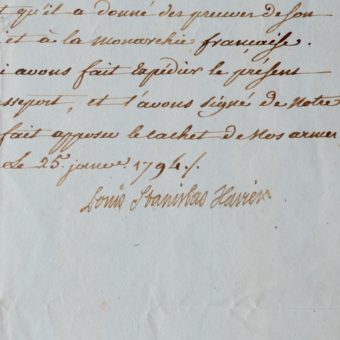 t qu'il a donné des preuves de son
et à la monarchie française.
i avons fait Expédier le présent
sseport, et l'avons signé de Notre
fait apposer le cachet de Nos armes
Le 25 janver 1794./.
Louis Stanislas Xavier